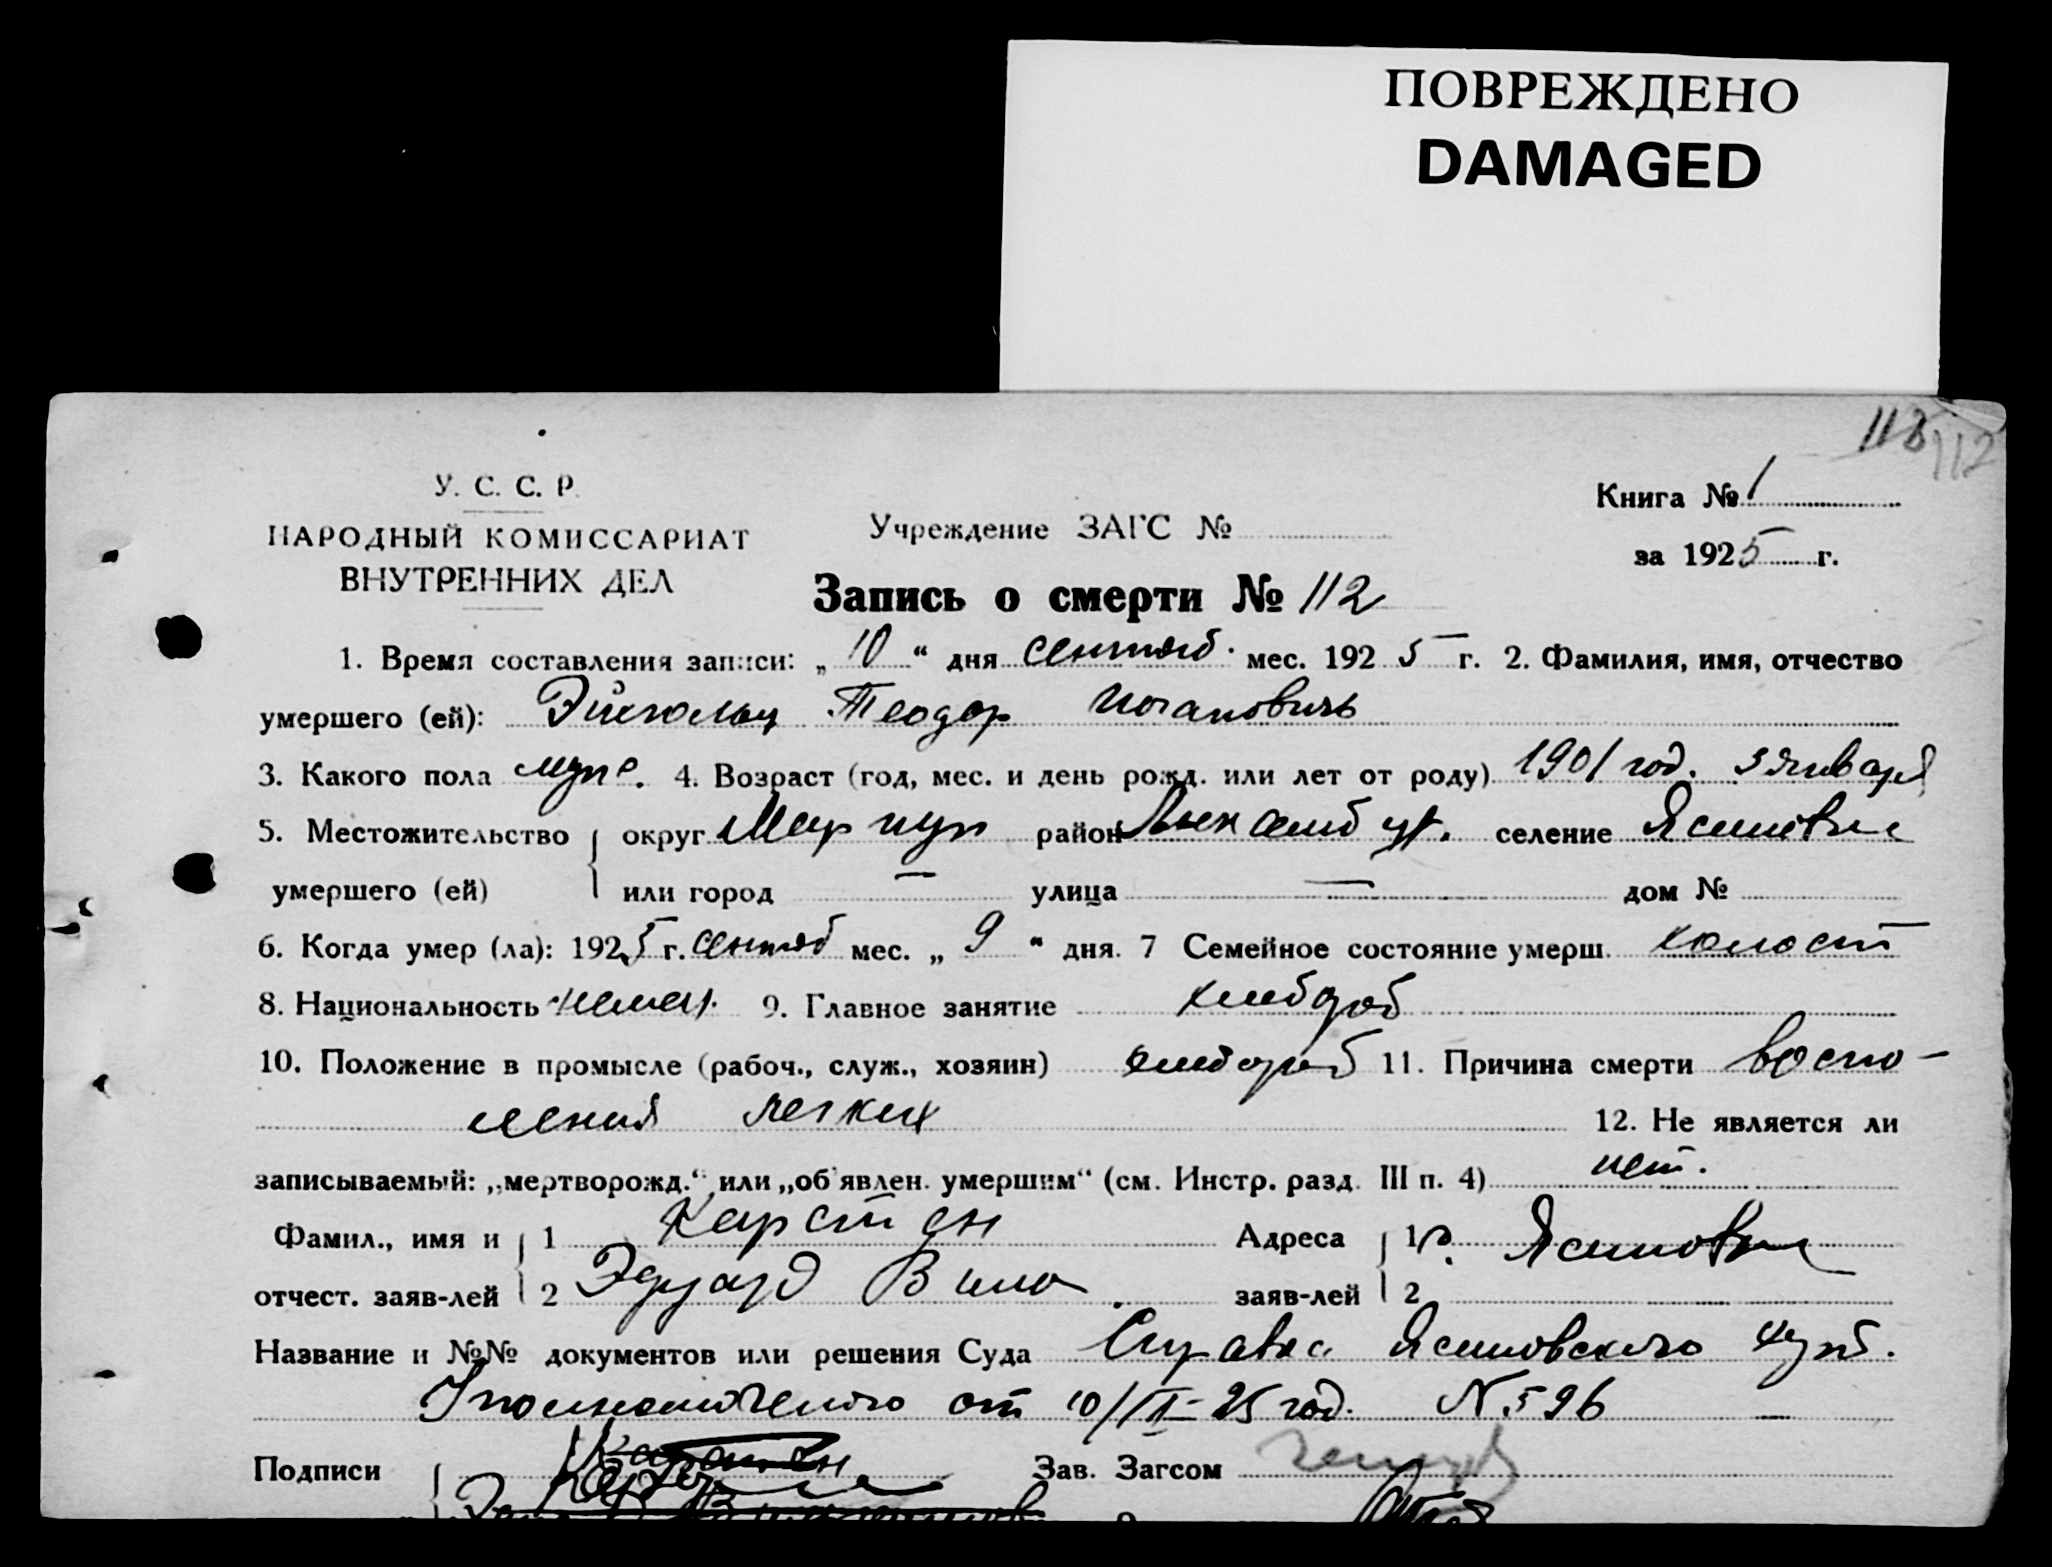 ПОВРЕЖДЕНО
DAMAGED
112
У. С. С. Р.
НАРОДНЫЙ КОМИССАРИАТ
ВНУТРЕННИХ ДЕЛ
Учреждение ЗАГС №
Книга № 1
за 1925 г.
Запись о смерти № 112
1. Время составления записи: „ 10 “ дня сентяб. мес. 1925 г. 2. Фамилия, имя, отчество
умершего (ей): Теодор Иогановичь
3. Какого пола муж. 4. Возраст (год, мес. и день рожд. или лет от роду) 1901 год. 3 января
5. Местожительство округ район Люксембур. селение Ясиновка
умершего (ей) или город — улица — дом №
6. Когда умер (ла): 1925 г. сентяб мес. „ 9 “ дня. 7 Семейное состояние умерш. холост
8. Национальность немец. 9. Главное занятие хлебороб
10. Положение в промысле (рабоч., служ., хозяин) хлебороб 11. Причина смерти воспо-
ления легких 12. Не является ли
записываемый: „мертворожд.“ или „об'явлен. умершим“ (см. Инстр. разд. III п. 4) нет.
Фамил., имя и 1 Карстен Адреса 1 Ясиновка
отчест. заяв-лей 2 Эдуард заяв-лей 2
Название и №№ документов или решения Суда Справка Ясиновского
от 10/IX-25 год. N 596
Подписи Зав. Загсом